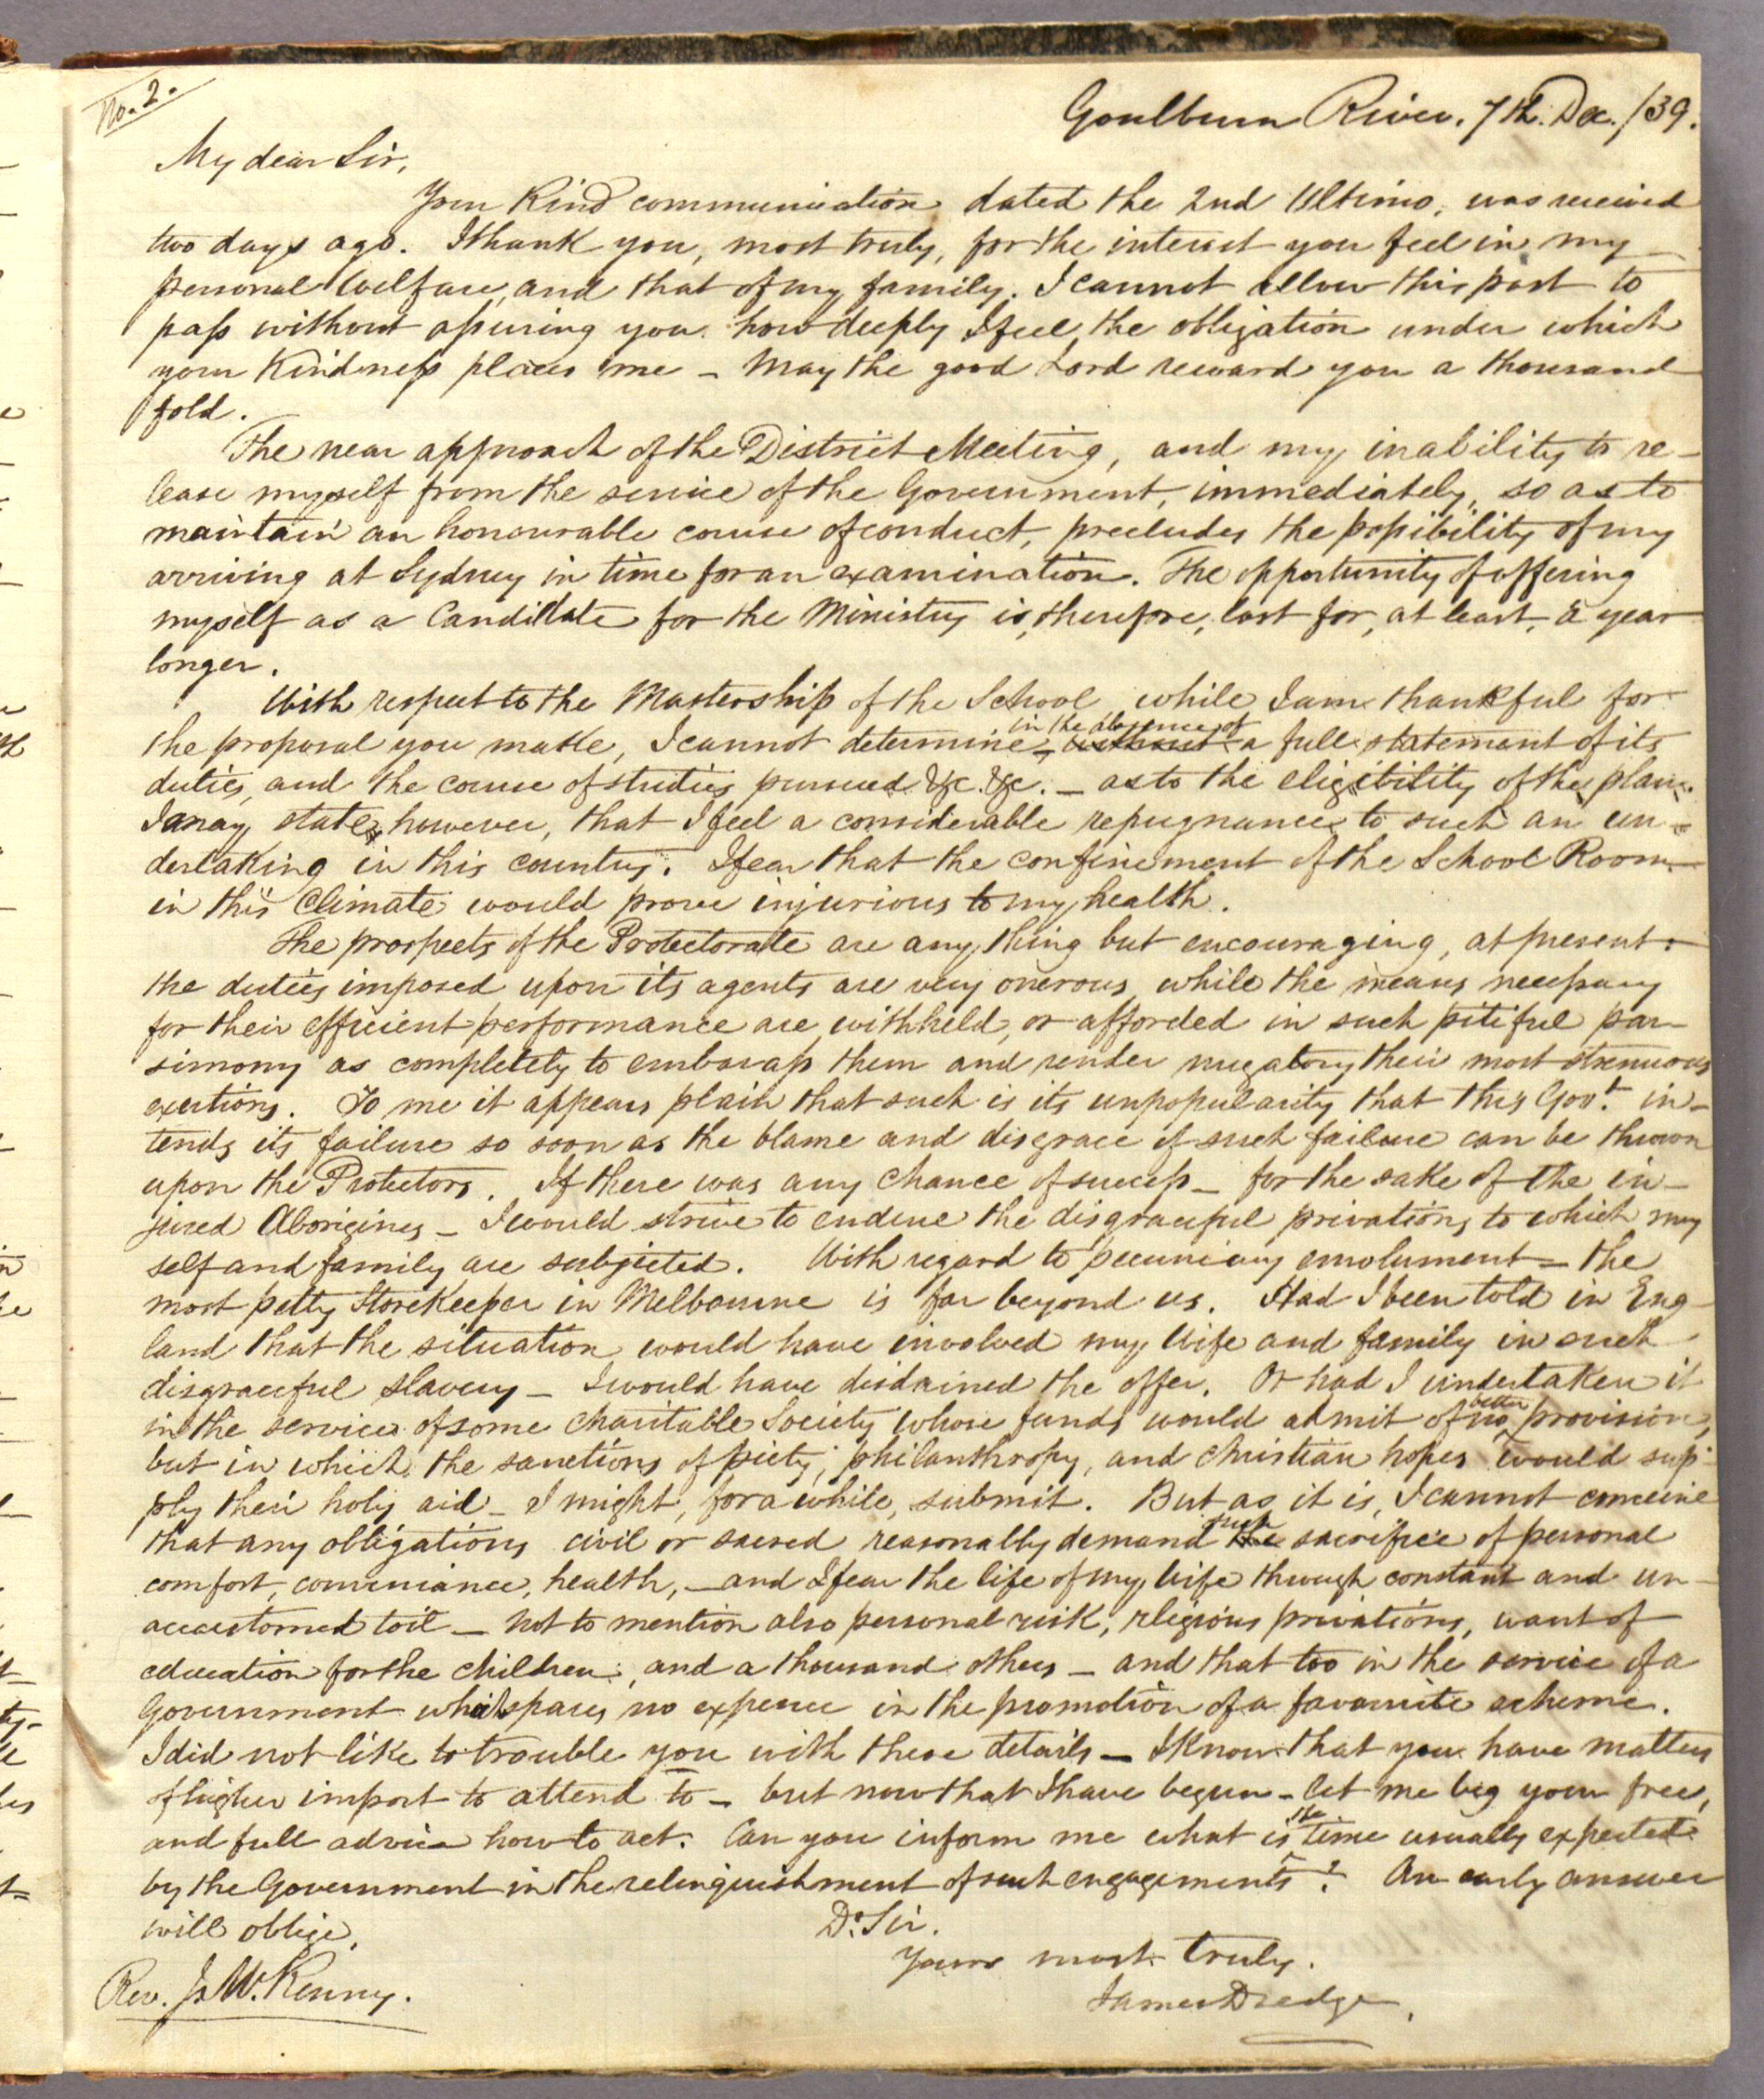 No. 2.
Goulburn River. 7th. Dec. /39.
My dear Sir,
Your kind communication dated the 2nd Ultimo, was received
two days ago. I thank you, most truly, for the interest you feel in my
personal welfare, and that of my family. I cannot allow this post to
pass without assuring you how deeply I feel the obligation under which
your kindness places me – May the good Lord reward you a thousand
fold.
The near approach of the District Meeting, and my inability to re-
lease myself from the service of the Government, immediately, so as to
maintain an honourable course of conduct, precludes the possibility of my
arriving at Sydney in time for an examination. The opportunity of offering
myself as a Candidate for the Ministry is, therefore, lost for, at least, a year
longer.
With respect to the Mastership of the School, while I am thankful for
the proposal you make, I cannot determine, in the absence of without a full statement of its
duties, and the course of studies pursued &c. &c. – as to the eligibility of the plan.
I may state, however, that I feel a considerable repugnance to such an un-
dertaking in this country. I fear that the confinement of the School Room
in this Climate would prove injurious to my health.
The prospects of the Protectorate are any thing but encouraging, at present.
the duties imposed upon its agents are very onerous while the means necessary
for their efficient performance are withheld, or afforded in such pitiful par-
simony as completely to embarass them and render nugatory their most strenuous
exertions. To me it appears plain that such is its unpopularity that this Govt. in-
tends its failure so soon as the blame and disgrace of such failure can be thrown
upon the Protectors. If there was any chance of success – for the sake of the in-
jured Aborigines – I would strive to endure the disgraceful privations to which my
self and family are subjected. With regard to pecuniary emolument – the
most petty Storekeeper in Melbourne is far beyond us. Had I been told in Eng-
land that the situation would have involved my Wife and family in such
disgraceful slavery – I would have disdained the offer. Or had I undertaken it
in the service of some charitable Society whose funds would admit of no better provision,
but in which the sanctions of piety, philanthropy, and Christian hopes would sup-
ply their holy aid – I might, for a while, submit. But as it is, I cannot conceive
that any obligations civil or sacred reasonably demand such the sacrifice of personal
comfort, conveniance, health, – and I fear the life of my wife through constant and un-
accustomed toil – not to mention also personal risk, rlegious privations, want of
education for the children, and a thousand others – and that too in the service of a
Government which spares no expence in the promotion of a favourite scheme.
I did not like to trouble you with these details – I know that you have matters
of higher import to attend to – but now that I have begun – let me beg your free,
and full advice how to act. Can you inform me what is the time usually expected
by the Government in the relinquishment of such engagements? An early answer
will oblige,
Dr. Sir.
Yours most truly.
James Dredge.
Rev. Js. W. Kenny.